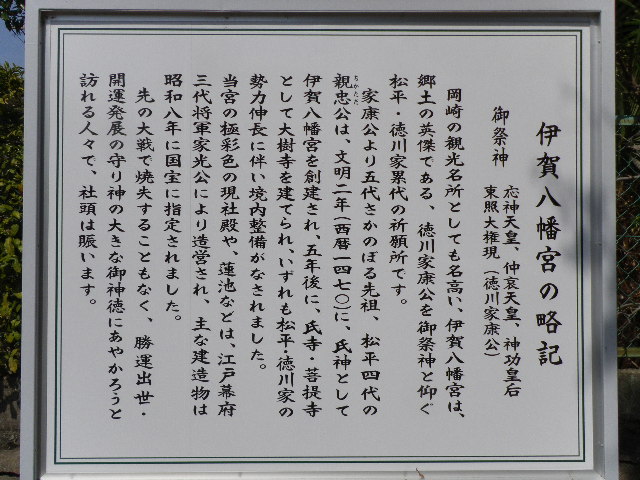 伊賀八幡宮の略記
御祭神
応神天皇、仲哀天皇、神功皇后
東照大権現（徳川家康公）
岡崎の観光名所としても名高い、伊賀八幡宮は、
郷土の英傑である、徳川家康公を御祭神と仰ぐ
松平・徳川家累代の祈願所です。
家康公より五代さかのぼる先祖、松平四代の
親忠公は、文明二年（西暦一四七〇）に、氏神として
ちかただ
伊賀八幡宮を創建され、五年後に、氏寺・菩提寺
として大樹寺を建てられ、いずれも松平・徳川家の
勢力伸長に伴い境内整備がなされました。
当宮の極彩色の現社殿や、蓮池などは、江戸幕府
三代将軍家光公により造営され、主な建造物は
昭和八年に国宝に指定されました。
先の大戦で焼失することもなく、勝運出世・
開運発展の守り神の大きな御神徳にあやかろうと
訪れる人々で、社頭は賑います。